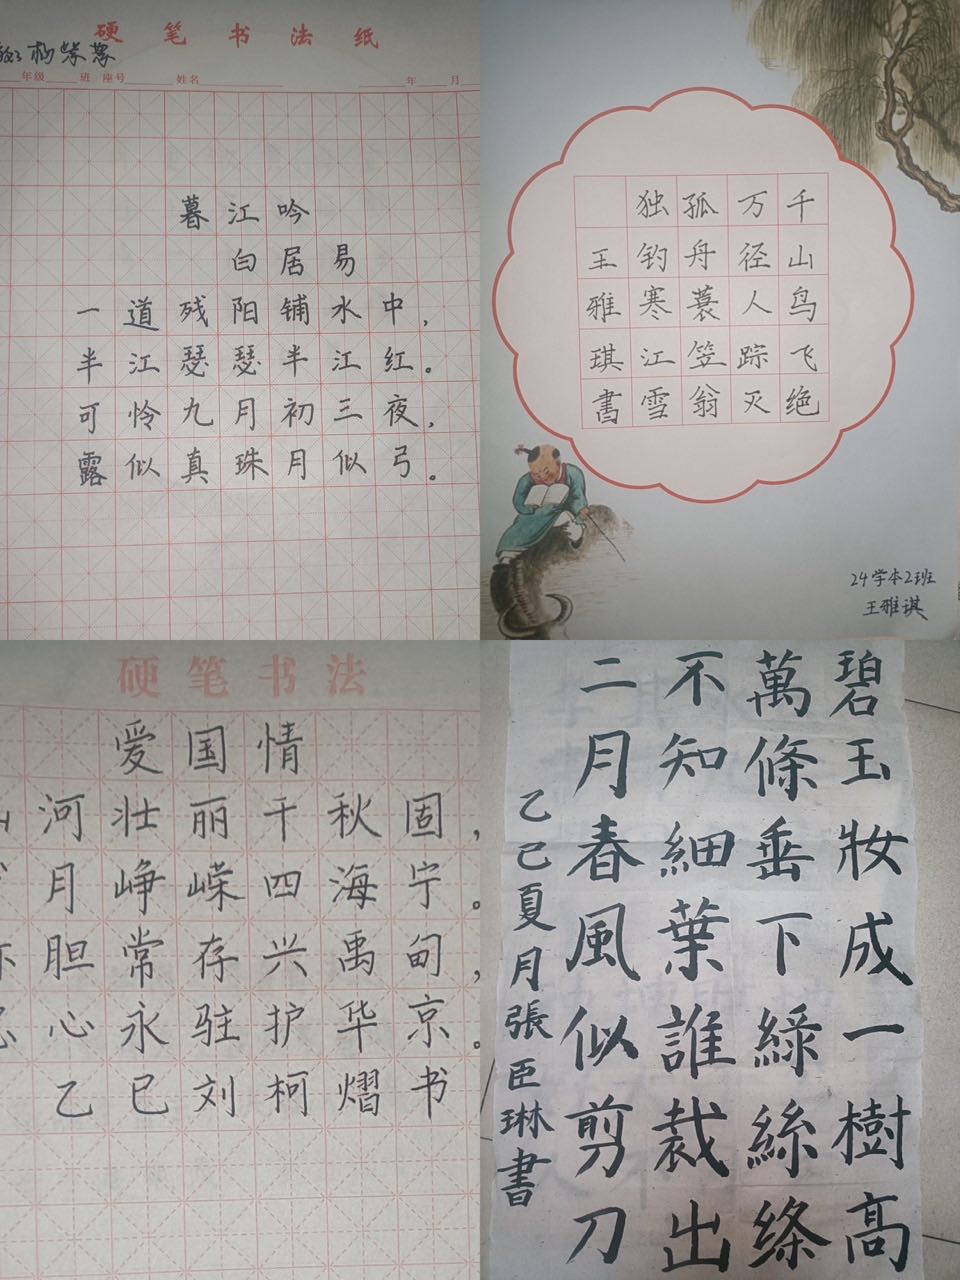 硬笔书法纸
年级 班 座号 姓名 年 月
暮江吟
白居易
一道残阳铺水中，
半江瑟瑟半江红。
可怜九月初三夜，
露似真珠月似弓。
千山鸟飞绝
万径人踪灭
孤舟蓑笠翁
独钓寒江雪
王雅琪書
24学本2班
王雅琪
硬笔书法
爱国情
河壮丽千秋固，
月峥嵘四海宁。
胆常存兴禹甸，
心永驻护华京。
乙巳刘柯熠书
碧玉妝成一樹高
萬條垂下綠絲絛
不知細葉誰裁出
二月春風似剪刀
乙巳夏月張臣琳書